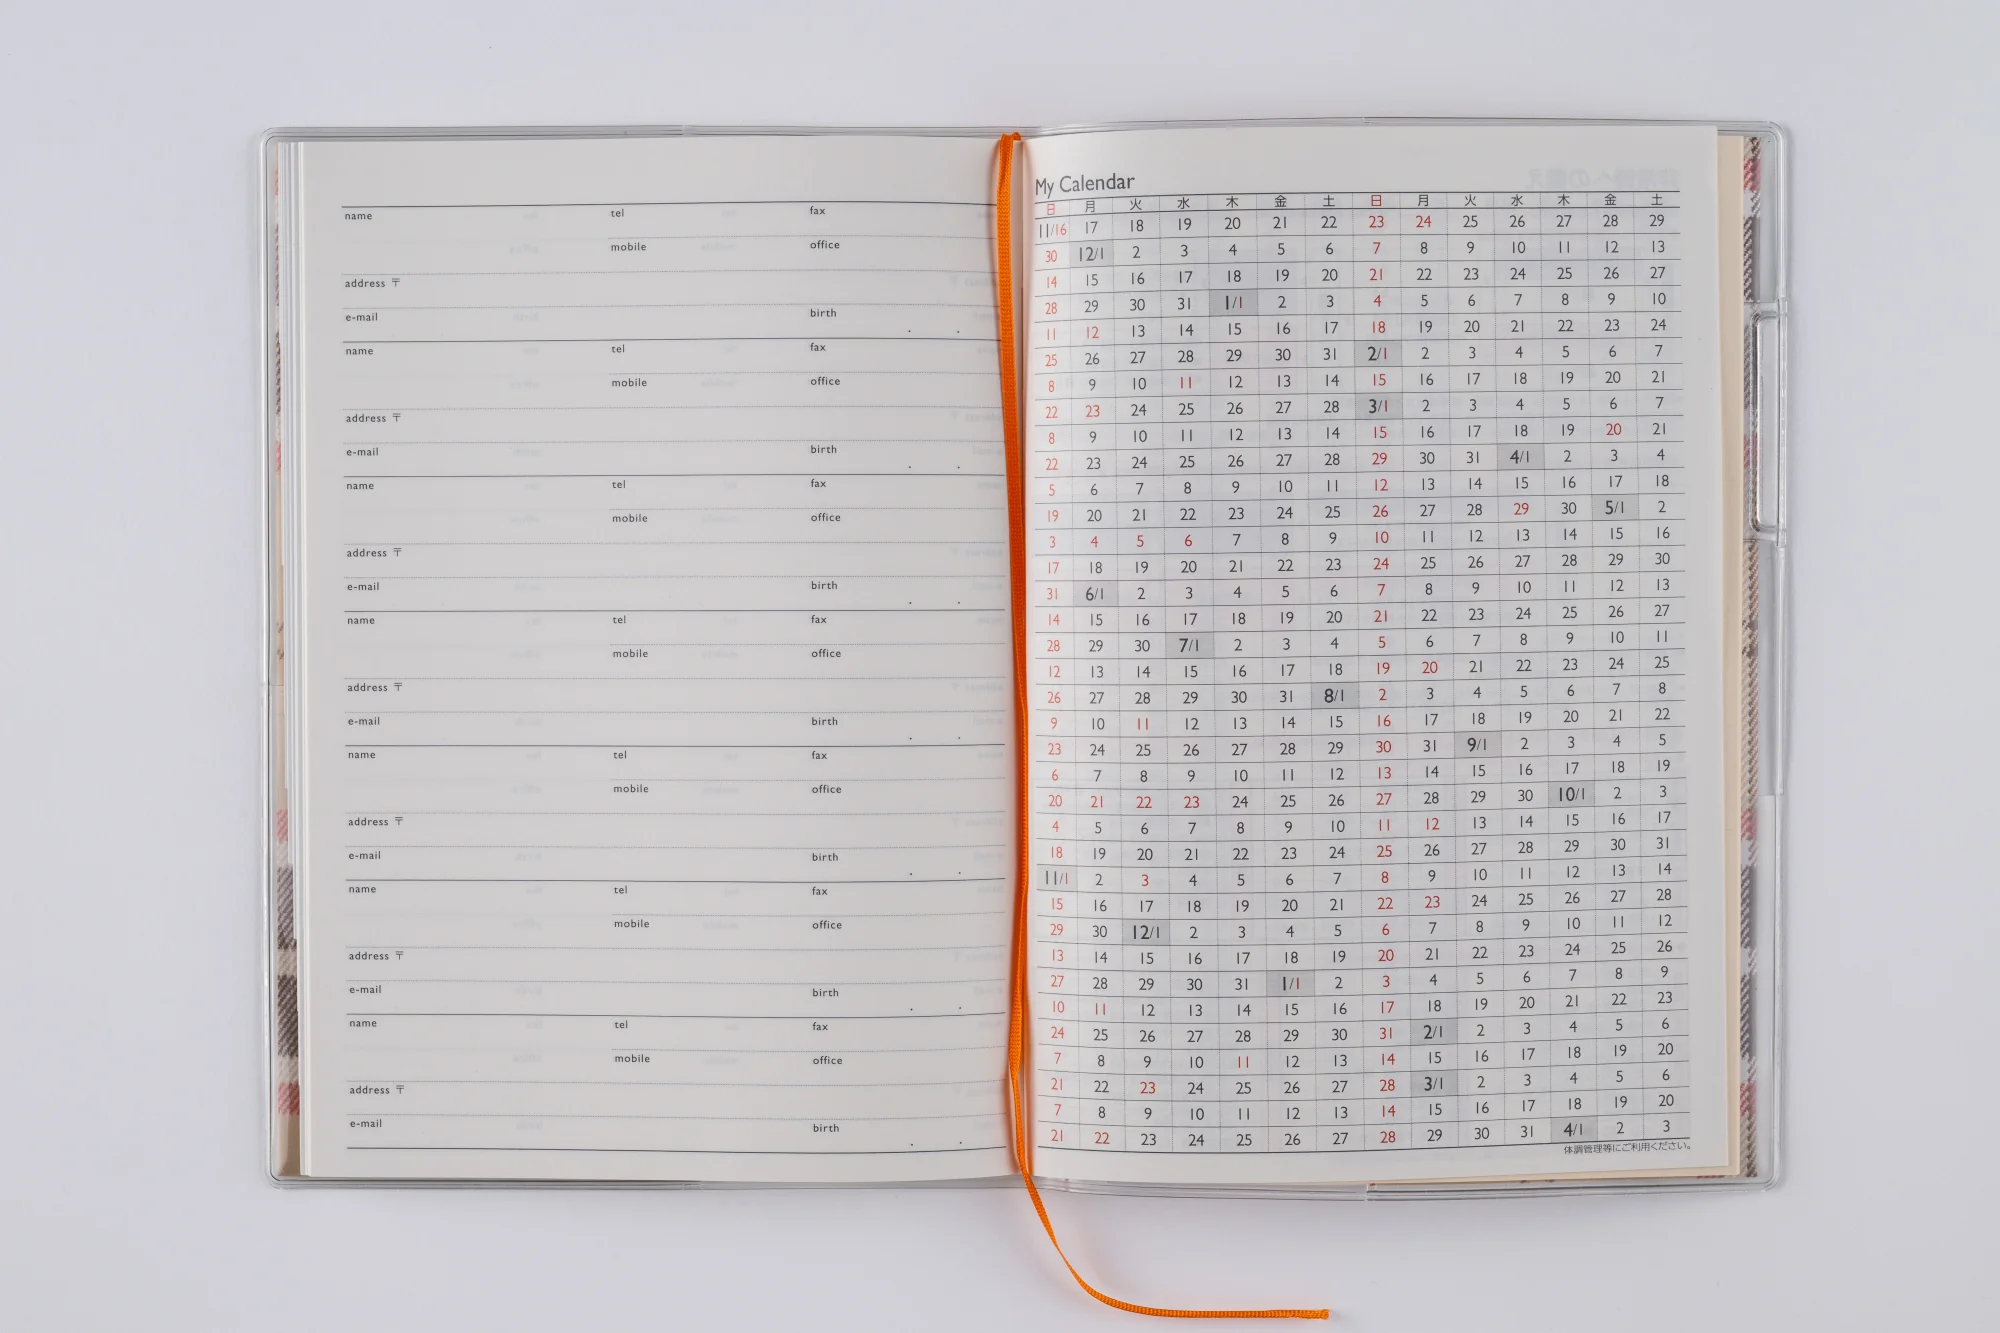 name tel fax
mobile office
address 〒
e-mail birth . .
name tel fax
mobile office
address 〒
e-mail birth . .
name tel fax
mobile office
address 〒
e-mail birth . .
name tel fax
mobile office
address 〒
e-mail birth . .
name tel fax
mobile office
address 〒
e-mail birth . .
name tel fax
mobile office
address 〒
e-mail birth . .
name tel fax
mobile office
address 〒
e-mail birth . .
My Calendar
日 月 火 水 木 金 土 日 月 火 水 木 金 土
11/16 17 18 19 20 21 22 23 24 25 26 27 28 29
30 12/1 2 3 4 5 6 7 8 9 10 11 12 13
14 15 16 17 18 19 20 21 22 23 24 25 26 27
28 29 30 31 1/1 2 3 4 5 6 7 8 9 10
11 12 13 14 15 16 17 18 19 20 21 22 23 24
25 26 27 28 29 30 31 2/1 2 3 4 5 6 7
8 9 10 11 12 13 14 15 16 17 18 19 20 21
22 23 24 25 26 27 28 3/1 2 3 4 5 6 7
8 9 10 11 12 13 14 15 16 17 18 19 20 21
22 23 24 25 26 27 28 29 30 31 4/1 2 3 4
5 6 7 8 9 10 11 12 13 14 15 16 17 18
19 20 21 22 23 24 25 26 27 28 29 30 5/1 2
3 4 5 6 7 8 9 10 11 12 13 14 15 16
17 18 19 20 21 22 23 24 25 26 27 28 29 30
31 6/1 2 3 4 5 6 7 8 9 10 11 12 13
14 15 16 17 18 19 20 21 22 23 24 25 26 27
28 29 30 7/1 2 3 4 5 6 7 8 9 10 11
12 13 14 15 16 17 18 19 20 21 22 23 24 25
26 27 28 29 30 31 8/1 2 3 4 5 6 7 8
9 10 11 12 13 14 15 16 17 18 19 20 21 22
23 24 25 26 27 28 29 30 31 9/1 2 3 4 5
6 7 8 9 10 11 12 13 14 15 16 17 18 19
20 21 22 23 24 25 26 27 28 29 30 10/1 2 3
4 5 6 7 8 9 10 11 12 13 14 15 16 17
18 19 20 21 22 23 24 25 26 27 28 29 30 31
11/1 2 3 4 5 6 7 8 9 10 11 12 13 14
15 16 17 18 19 20 21 22 23 24 25 26 27 28
29 30 12/1 2 3 4 5 6 7 8 9 10 11 12
13 14 15 16 17 18 19 20 21 22 23 24 25 26
27 28 29 30 31 1/1 2 3 4 5 6 7 8 9
10 11 12 13 14 15 16 17 18 19 20 21 22 23
24 25 26 27 28 29 30 31 2/1 2 3 4 5 6
7 8 9 10 11 12 13 14 15 16 17 18 19 20
21 22 23 24 25 26 27 28 3/1 2 3 4 5 6
7 8 9 10 11 12 13 14 15 16 17 18 19 20
21 22 23 24 25 26 27 28 29 30 31 4/1 2 3
体調管理等にご利用ください。